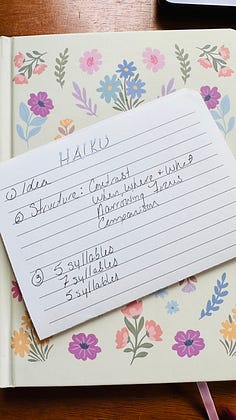 HAIKU
① Idea
② Structure: Contrast
When, Where & What
Narrowing Focus
Comparison
③ 5 syllables
7 syllables
5 syllables